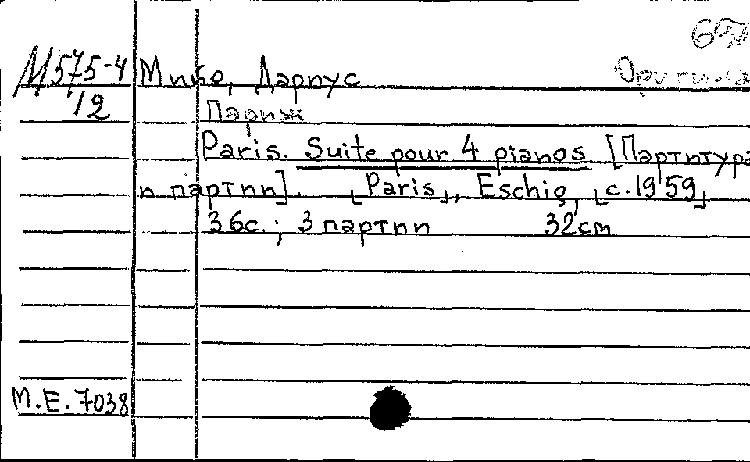 М575-4 Мийо, Дариус
12
Париж
Paris. Suite pour 4 pianos [Партитура
и партии]. [Paris], Eschig, [c.1959]
36с.; 3 партии 32cm
M.E. 7038